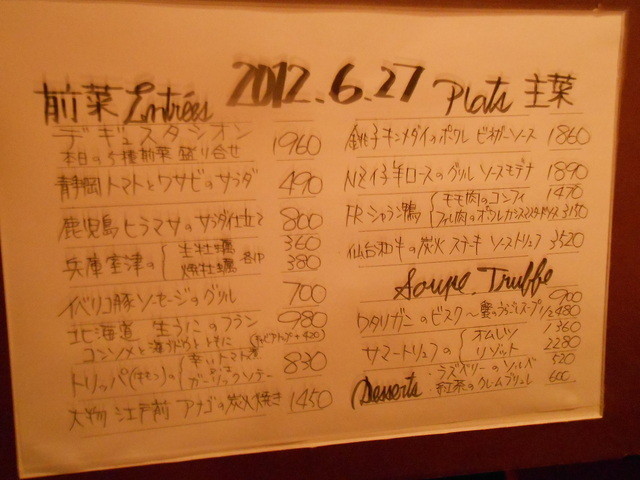 2012.6.27
前菜 Entrées
デギュスタシオン
本日の5種前菜 盛り合せ 1960
静岡トマトとワサビのサラダ 490
鹿児島ヒラマサのサラダ仕立て 800
兵庫室津の
生牡蠣 360
焼牡蠣 380
各1ケ
イベリコ豚ソーセージのグリル 700
北海道 生うにのフラン 980
コンソメと
トリッパ(牛モツ)の 830
辛いトマト煮
ガーリックソテー
大判 江戸前 アナゴの炭火焼き 1450
Plats 主菜
銚子キンメダイのポワレ ビネガーソース 1860
NZ仔羊ロースのグリル ソースモデナ 1890
FRシャラン鴨
モモ肉のコンフィ 1470
フィレ肉のポワレカシスマスタードソース 3150
仙台和牛の炭火ステーキ ソーストリュフ 3520
Soupe, Truffe
ワタリガニのビスク〜 900
1/2 480
サマートリュフの
オムレツ 1360
リゾット 2280
Desserts
・ラズベリーのソルベ 520
・紅茶のクレムブリュレ 600